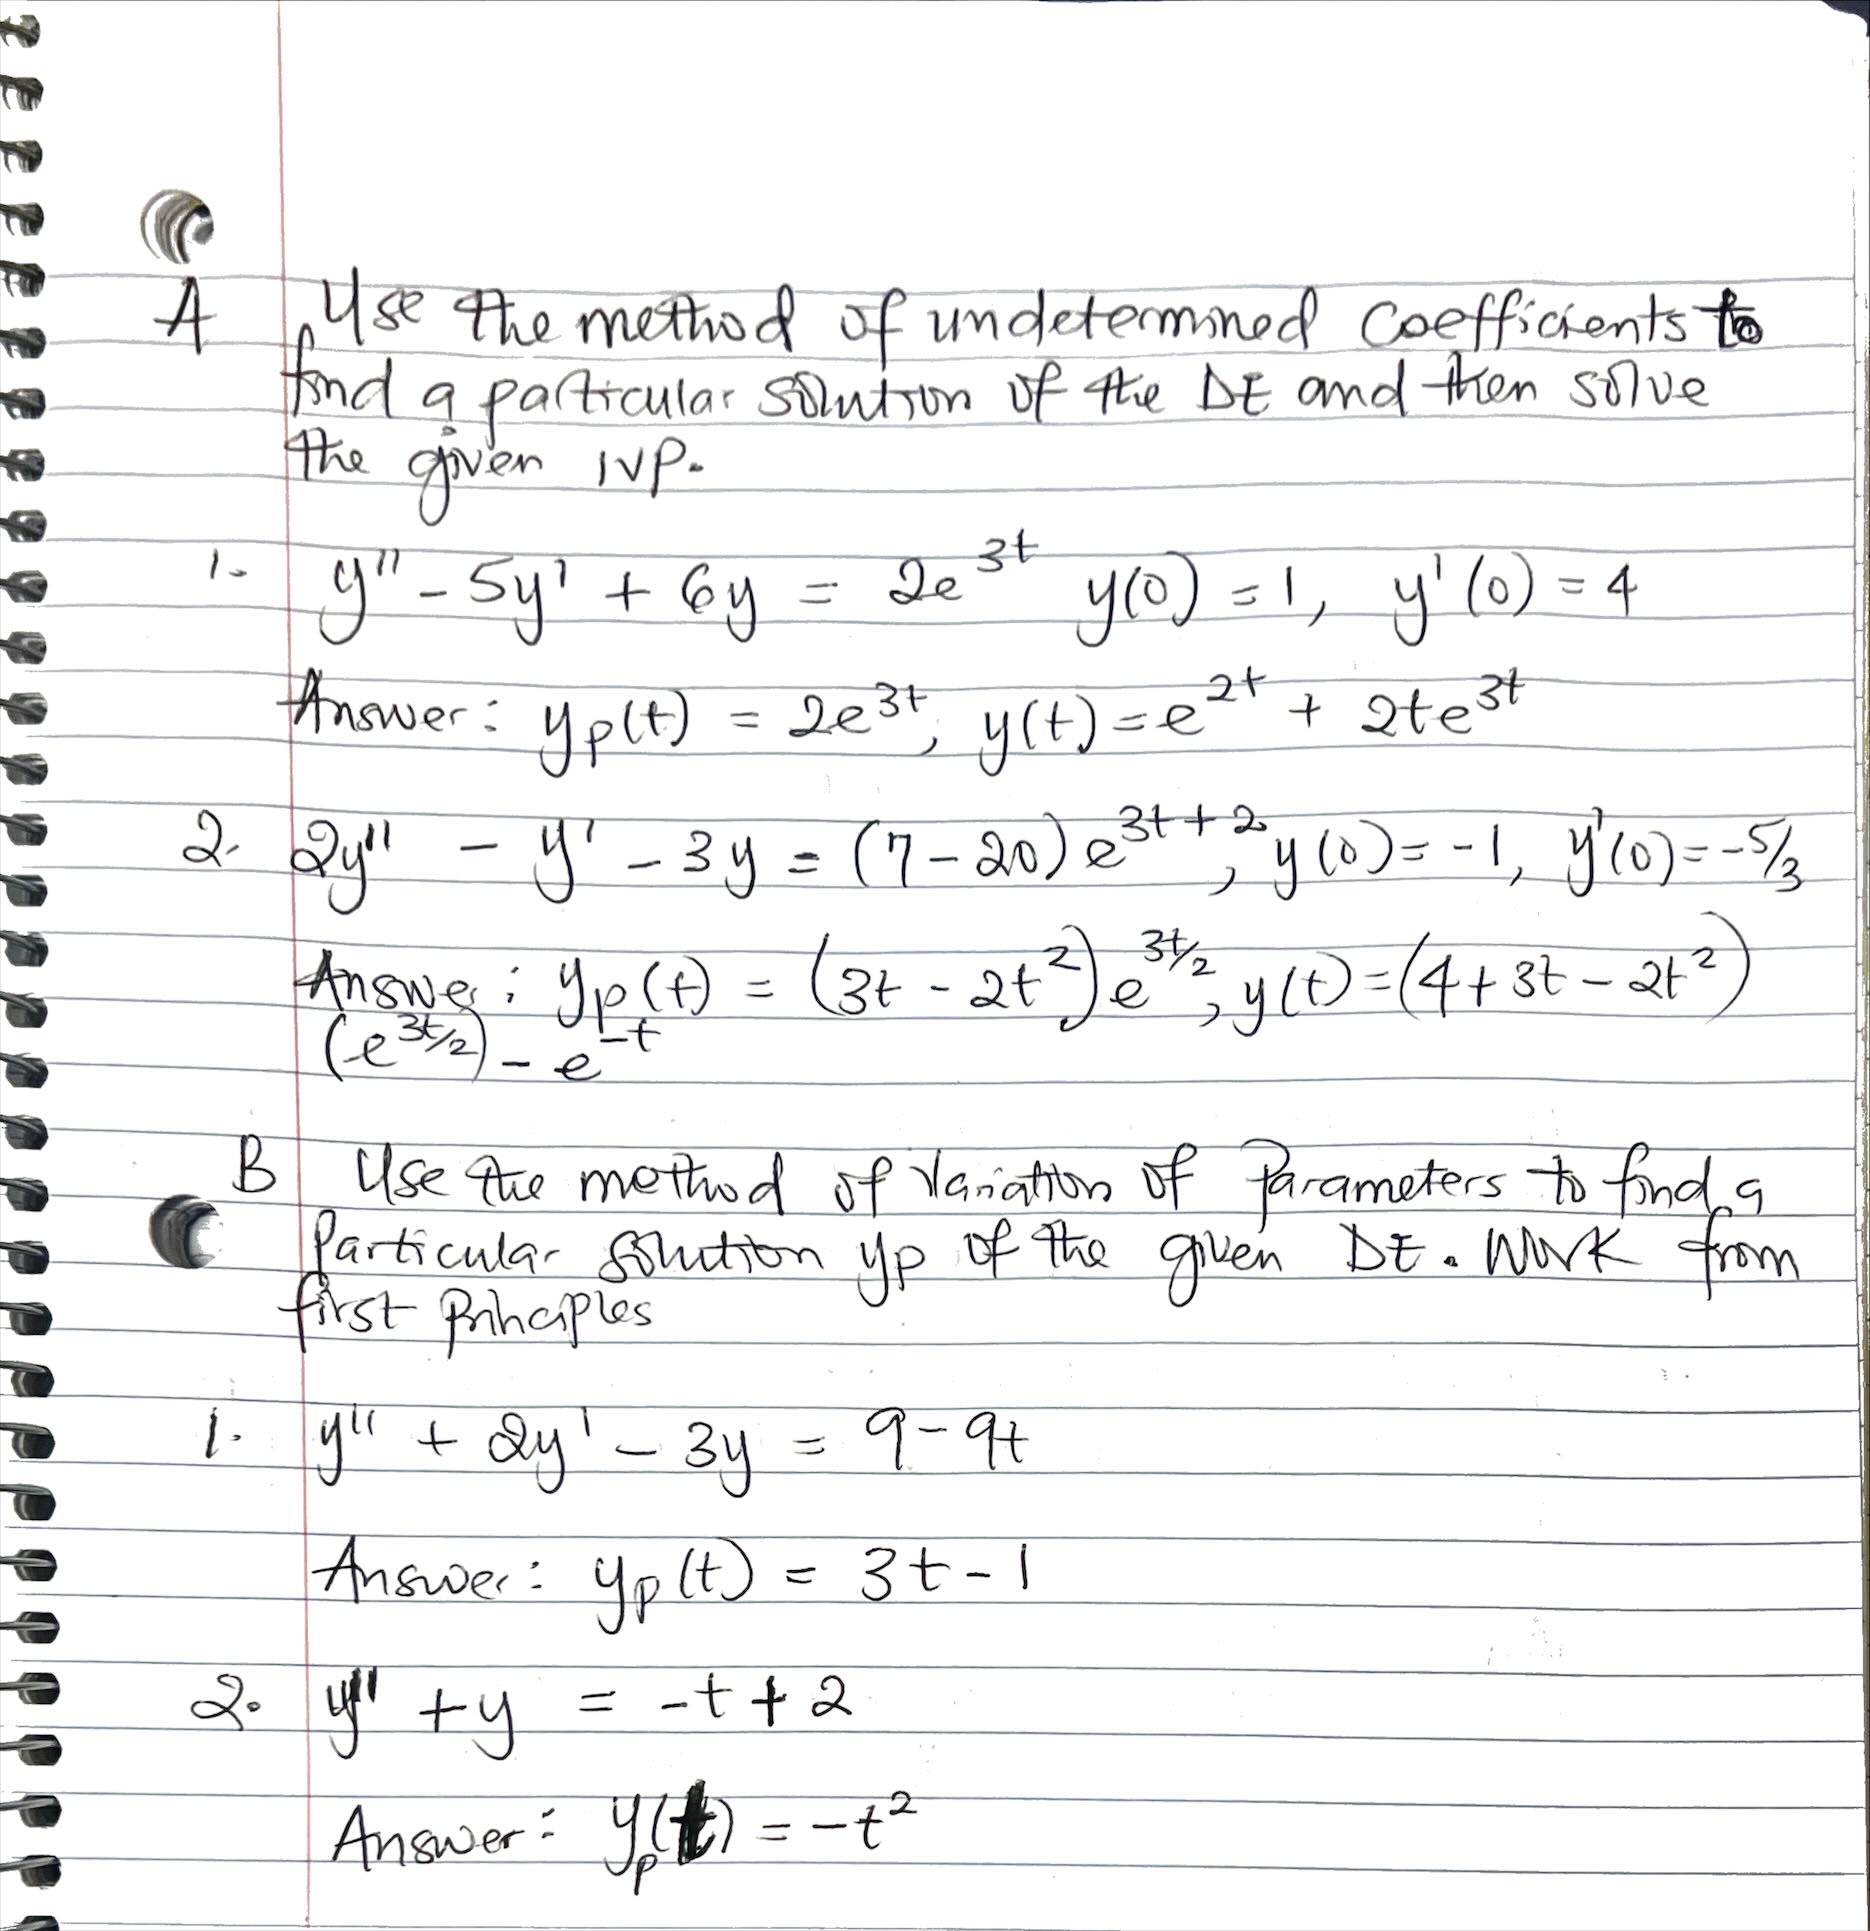 A Use the method of undetermined Coefficients to
find a particular solution of the DE and then solve
the given IVP.
1. y'' - 5y' + 6y = 2e^3t y(0) = 1, y'(0) = 4
Answer: yp(t) = 2e^3t, y(t) = e^2t + 2te^3t
2. 2y'' - y' - 3y = (7-20)e^3t+2, y(0) = -1, y'(0) = -5/3
Answer: yp(t) = (3t - 2t²)e^3t/2, y(t) = (4 + 3t - 2t²)
(e^3t/2) - e^-t
B Use the method of Variation of Parameters to find a
Particular solution yp of the given DE. Work from
first Principles
1. y'' + 2y' - 3y = 9 - 9t
Answer: yp(t) = 3t - 1
2. y'' + y = -t + 2
Answer: yp(t) = -t²